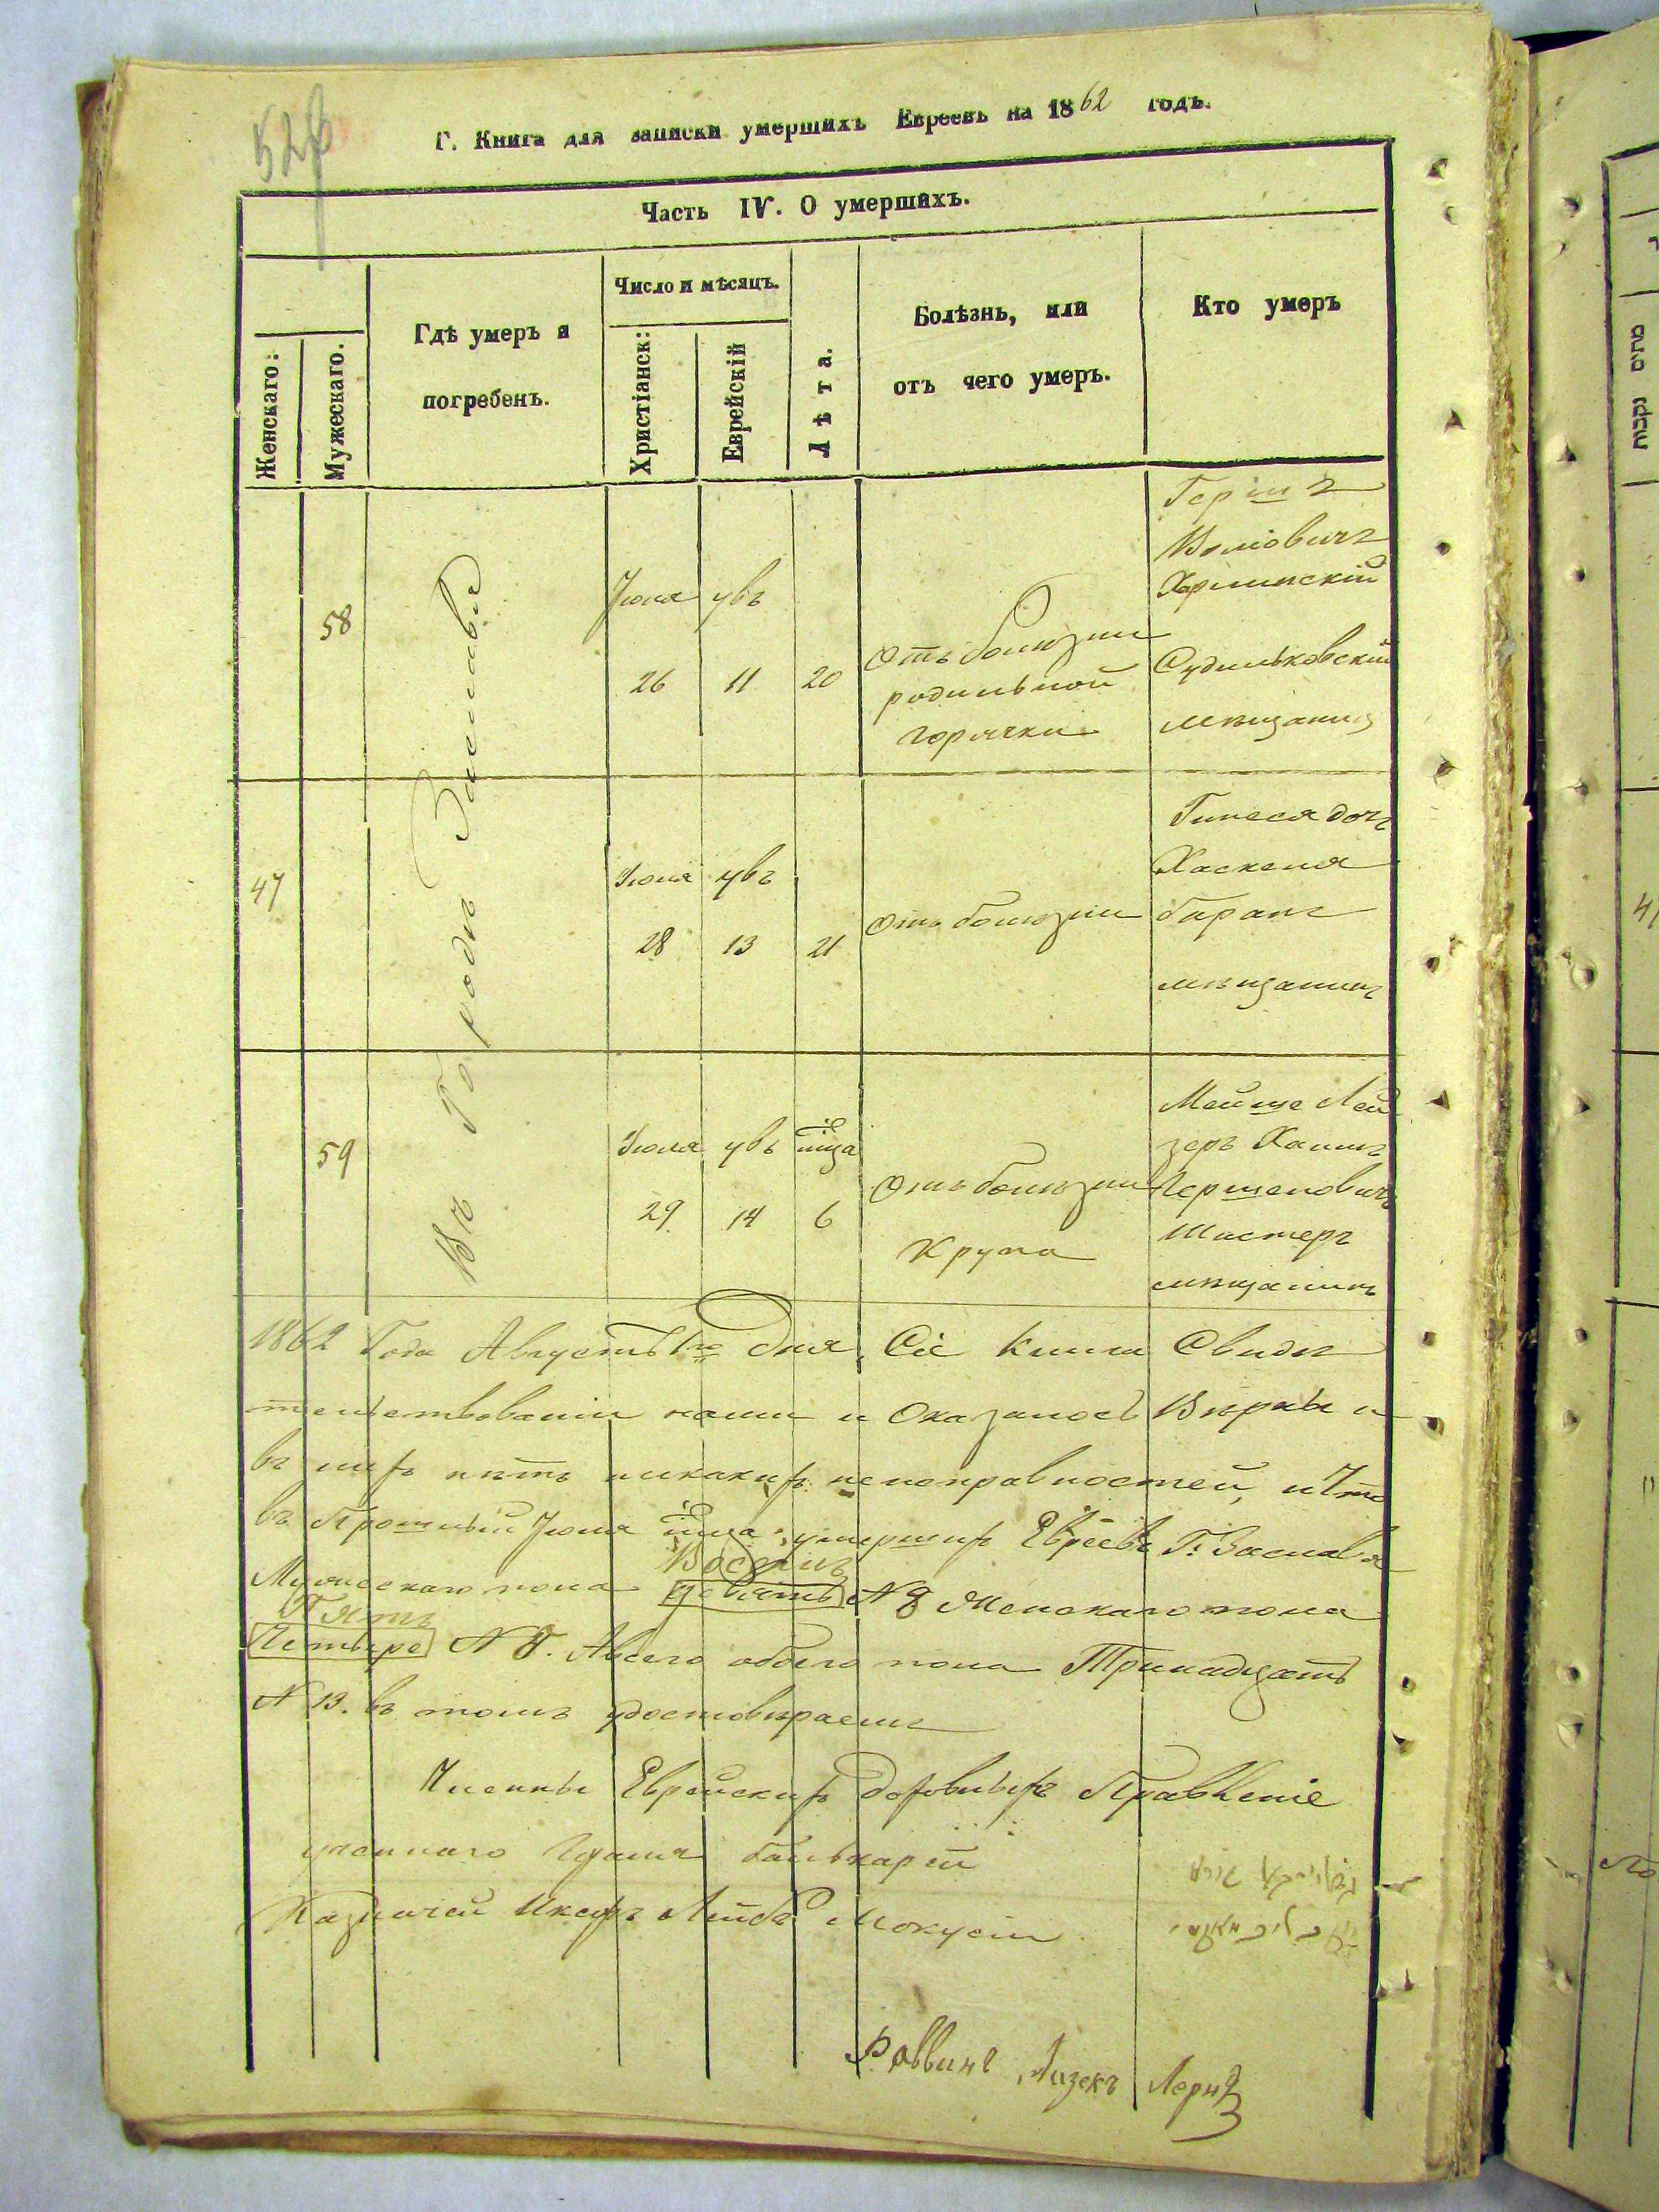 528
Г. Книга для записки умершихъ Евреевъ на 1862 годъ.
Часть IV. О умершихъ.
Женскаго:
Мужескаго.
Гдѣ умеръ и
погребенъ.
Число и мѣсяцъ.
Христіанск:
Еврейскій
Лѣта.
Болѣзнь, или
отъ чего умеръ.
Кто умеръ
Въ Городѣ Заславѣ
58
Іюля увъ
26 11 20
Отъ болѣзни
родильной
горячки
Гершъ
Волковичъ
Судилковскій
мѣщанинъ
47
Іюля увъ
28 13 21
Отъ болѣзни
дочь
Хаскеля
Баранъ
мѣщанинъ
59
Іюля увъ м-ца
29 14 6
Отъ болѣзни
Крупа
Мейше Лей
зеръ Хаимъ
Гершеновичъ
Шистеръ
мѣщанинъ
1862 Года Августъ 1го Дня, Сіе Книга Свидѣ
тельствованіи нами и Оказалось Вѣрны и
въ ихъ нѣтъ никакихъ неисправностей, и Что
въ Прошлый Іюля м-ца умершихъ Евреевъ Г. Заславля
Восемь
Мужескаго пола девять N 8 Женскаго пола
Пять
Четыре N 5. Авсего обоего пола Тринадцать
N 13. въ томъ удостовѣраемъ
Члены Еврейскихъ Доховныхъ Правленіе
ученнаго
Казначей Лейбъ
Раввинъ Айзекъ Лернъ
מתים נקבות